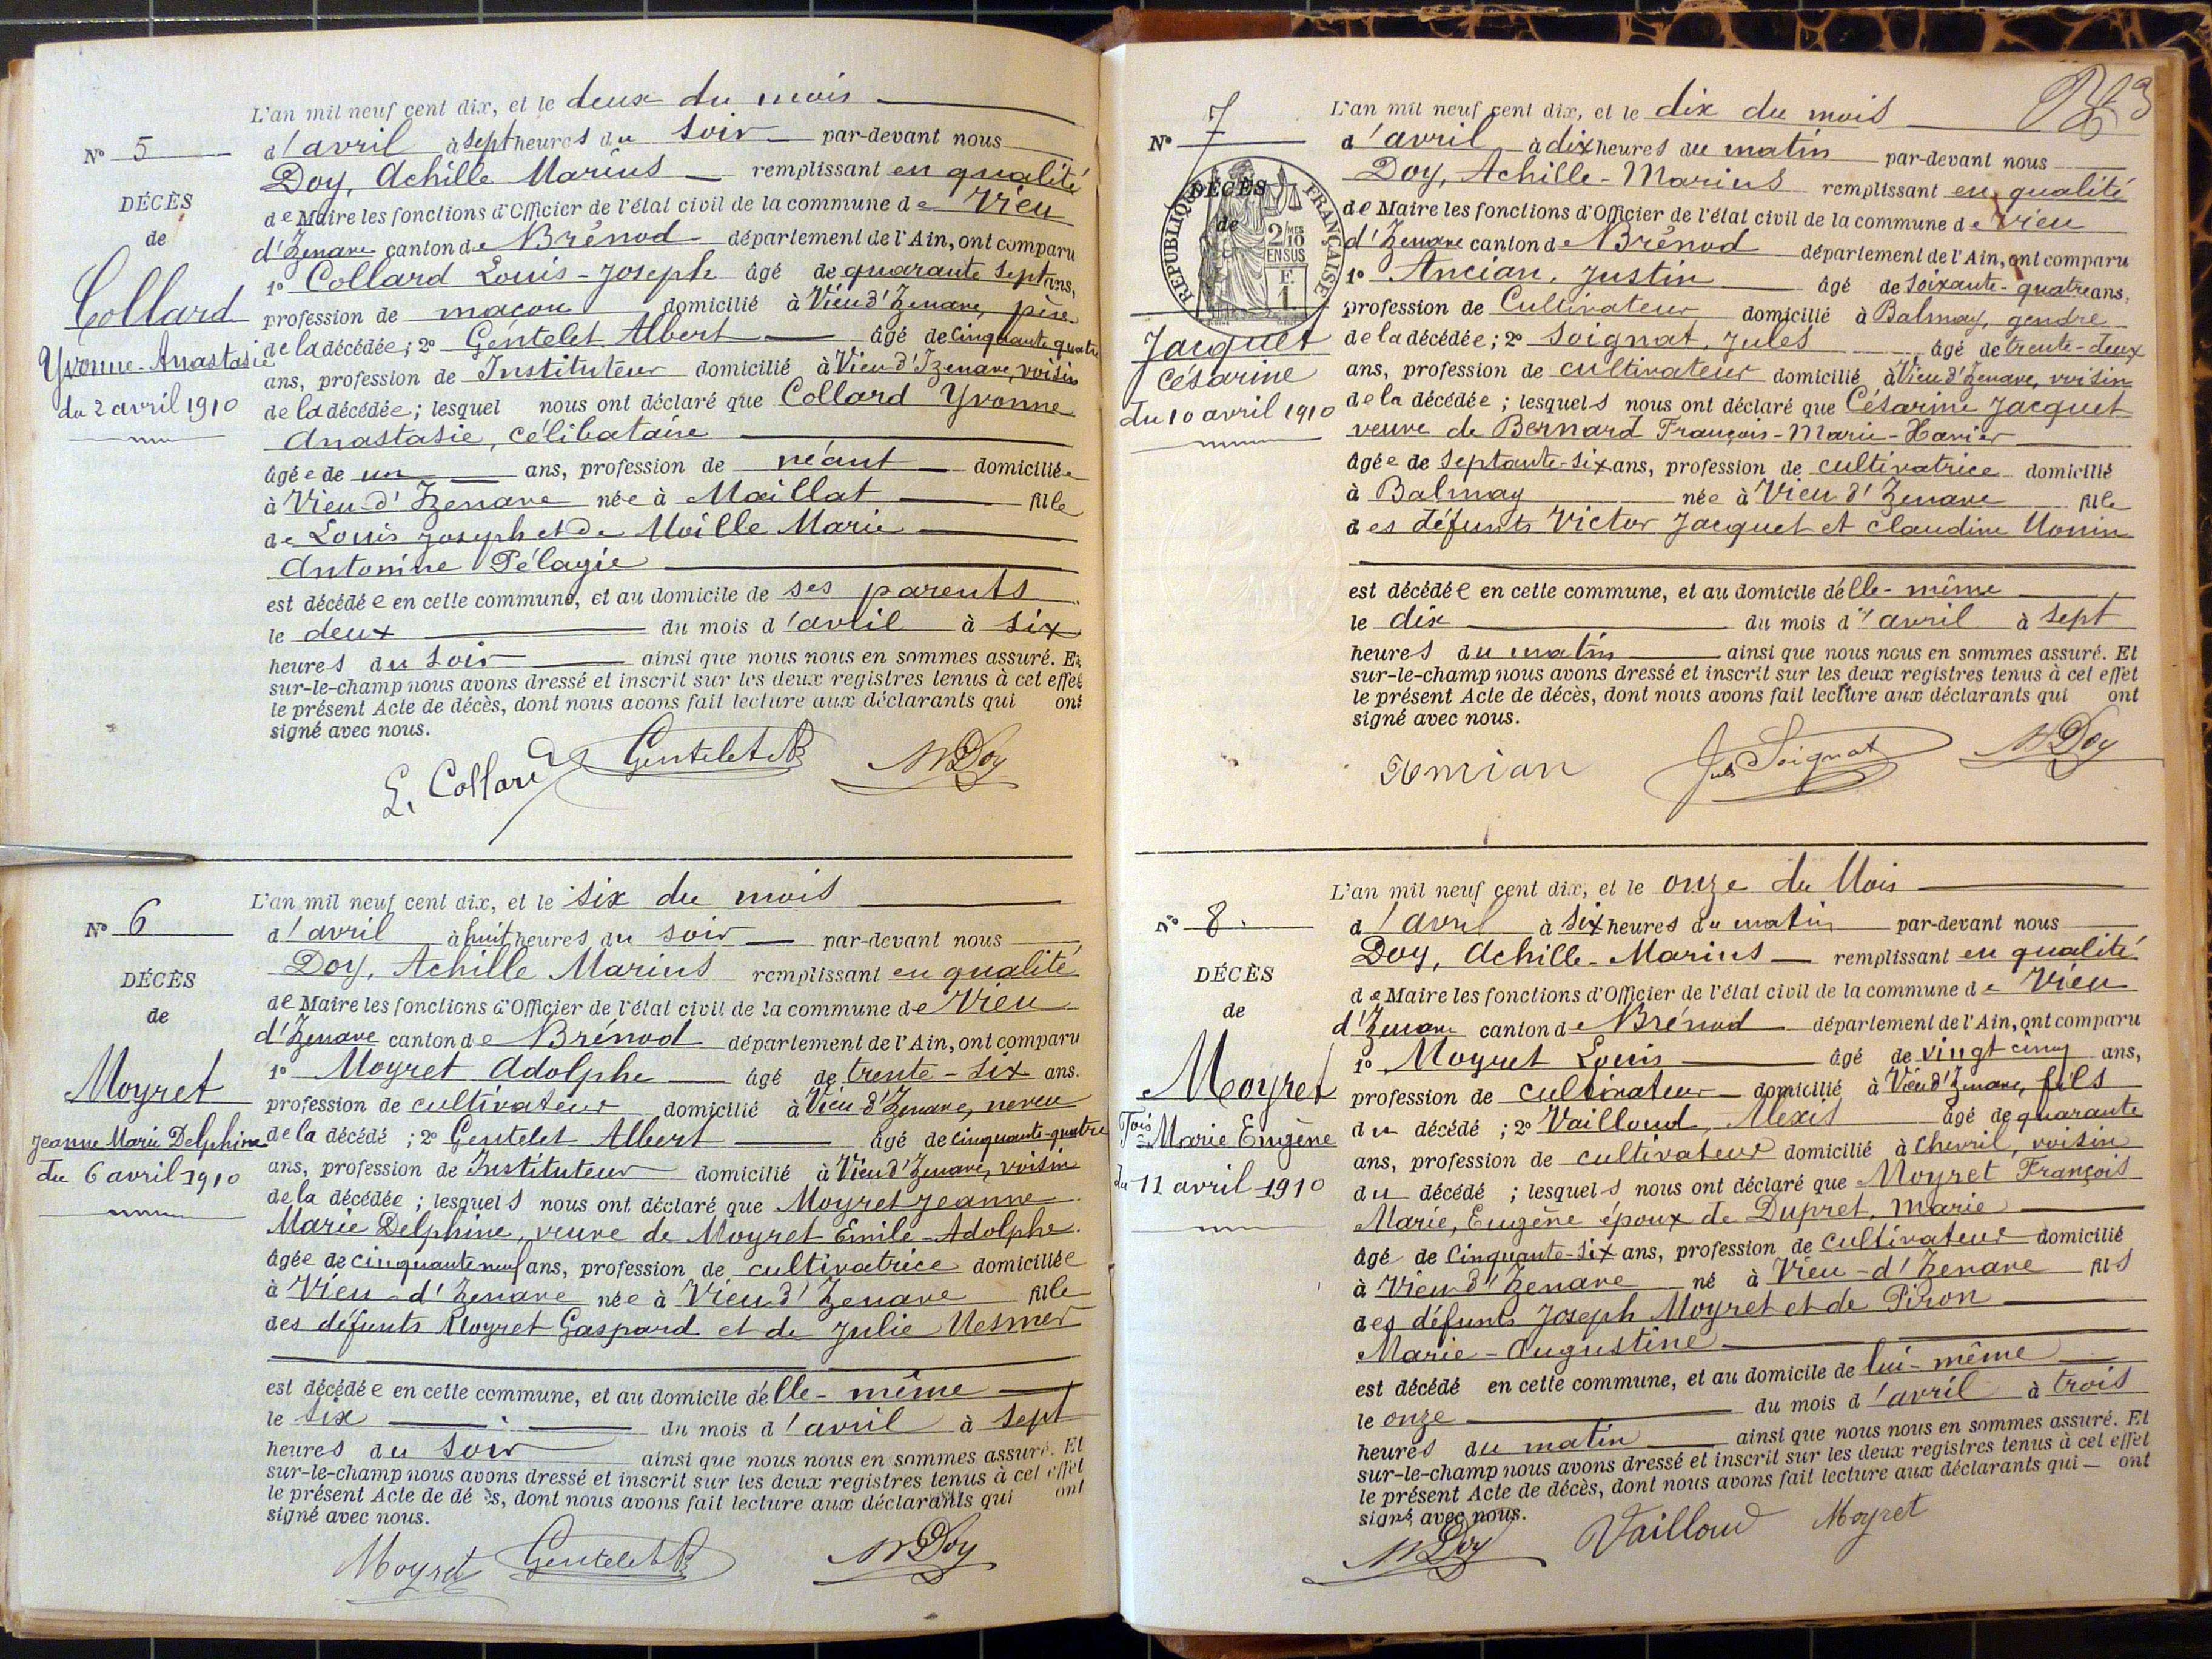 L'an mil neuf cent dix, et le deux du mois
N° 5
d'avril à sept heures du soir par-devant nous
Doy, Achille Marius remplissant en qualité
DÉCÈS
de Maire les fonctions d'Officier de l'état civil de la commune de Vieu
de
d'Izenave canton de Brénod département de l'Ain, ont comparu
1° Collard Louis-Joseph âgé de quarante sept ans,
Collard
profession de maçon domicilié à Vieu d'Izenave, père
Yvonne-Anastasie
de la décédée; 2° Gentelet Albert âgé de cinquante quatre
ans, profession de Instituteur domicilié à Vieu d'Izenave, voisin
du 2 avril 1910
de la décédée; lesquel nous ont déclaré que Collard Yvonne
Anastasie, célibataire
âgée de un ans, profession de néant domiciliée
à Vieu d'Izenave née à Maillat fille
de Louis Joseph et de Moille Marie
Antonine Pélagie
est décédée en cette commune, et au domicile de ses parents
le deux du mois d'avril à six
heures du soir ainsi que nous nous en sommes assuré. Et
sur-le-champ nous avons dressé et inscrit sur les deux registres tenus à cet effet
le présent Acte de décès, dont nous avons fait lecture aux déclarants qui ont
signé avec nous.
L. Collard Gentelet A MDoy
L'an mil neuf cent dix, et le six du mois
N° 6
d'avril à huit heures du soir par-devant nous
Doy, Achille Marius remplissant en qualité
DÉCÈS
de Maire les fonctions d'Officier de l'état civil de la commune de Vieu
de
d'Izenave canton de Brénod département de l'Ain, ont comparu
1° Moyret Adolphe âgé de trente-six ans.
Moyret
profession de cultivateur domicilié à Vieu d'Izenave, neveu
Jeanne Marie Delphine
de la décédé; 2° Gentelet Albert âgé de cinquante-quatre
ans, profession de Instituteur domicilié à Vieu d'Izenave, voisin
du 6 avril 1910
de la décédée; lesquels nous ont déclaré que Moyret Jeanne
Marie Delphine, veuve de Moyret Emile-Adolphe.
âgée de cinquante neuf ans, profession de cultivatrice domiciliée
à Vieu-d'Izenave née à Vieu d'Izenave fille
des défunts Moyret Gaspard et de Julie Mesmer
est décédée en cette commune, et au domicile d'elle-même
le six du mois d'avril à sept
heures du soir ainsi que nous nous en sommes assuré. Et
sur-le-champ nous avons dressé et inscrit sur les deux registres tenus à cet effet
le présent Acte de décès, dont nous avons fait lecture aux déclarants qui ont
signé avec nous.
Moyret Gentelet A MDoy
L'an mil neuf cent dix, et le dix du mois
N° 7
d'avril à dix heures du matin par-devant nous
Doy, Achille-Marius remplissant en qualité
DÉCÈS
de Maire les fonctions d'Officier de l'état civil de la commune de Vieu
de
RÉPUBLIQUE FRANÇAISE
2/10 MES
EN SUS
F.
1.
d'Izenave canton de Brénod département de l'Ain, ont comparu
1° Ancian, Justin âgé de soixante-quatre ans,
profession de Cultivateur domicilié à Balmay, gendre
Jacquet
de la décédée; 2° Soignat, Jules âgé de trente-deux
Césarine
ans, profession de cultivateur domicilié à Vieu d'Izenave, voisin
du 10 avril 1910
de la décédée; lesquels nous ont déclaré que Césarine Jacquet
veuve de Bernard François-Marie-Xavier
âgée de septante-six ans, profession de cultivatrice domicilié
à Balmay née à Vieu d'Izenave fille
des défunts Victor Jacquet et Claudine Monin
est décédée en cette commune, et au domicile d'elle-même
le dix du mois d'avril à sept
heures du matin ainsi que nous nous en sommes assuré. Et
sur-le-champ nous avons dressé et inscrit sur les deux registres tenus à cet effet
le présent Acte de décès, dont nous avons fait lecture aux déclarants qui ont
signé avec nous.
Ancian Jules Soignat MDoy
L'an mil neuf cent dix, et le onze du Mois
N° 8.
d'avril à six heures du matin par-devant nous
Doy, Achille-Marius remplissant en qualité
DÉCÈS
de Maire les fonctions d'Officier de l'état civil de la commune de Vieu
de
d'Izenave canton de Brénod département de l'Ain, ont comparu
1° Moyret Louis âgé de vingt cinq ans,
Moyret
profession de cultivateur domicilié à Vieu d'Izenave, fils
Fois Marie Eugène
du décédé; 2° Vailloud, Alexis âgé de quarante
ans, profession de cultivateur domicilié à Chevril, voisin
du 11 avril 1910
du décédé; lesquels nous ont déclaré que Moyret François
Marie, Eugène époux de Dupret, Marie
âgé de Cinquante-six ans, profession de cultivateur domicilié
à Vieu d'Izenave né à Vieu-d'Izenave fils
des défunts Joseph Moyret et de Piron
Marie-Augustine
est décédé en cette commune, et au domicile de lui-même
le onze du mois d'avril à trois
heures du matin ainsi que nous nous en sommes assuré. Et
sur-le-champ nous avons dressé et inscrit sur les deux registres tenus à cet effet
le présent Acte de décès, dont nous avons fait lecture aux déclarants qui ont
signé avec nous.
MDoy Vailloud Moyret